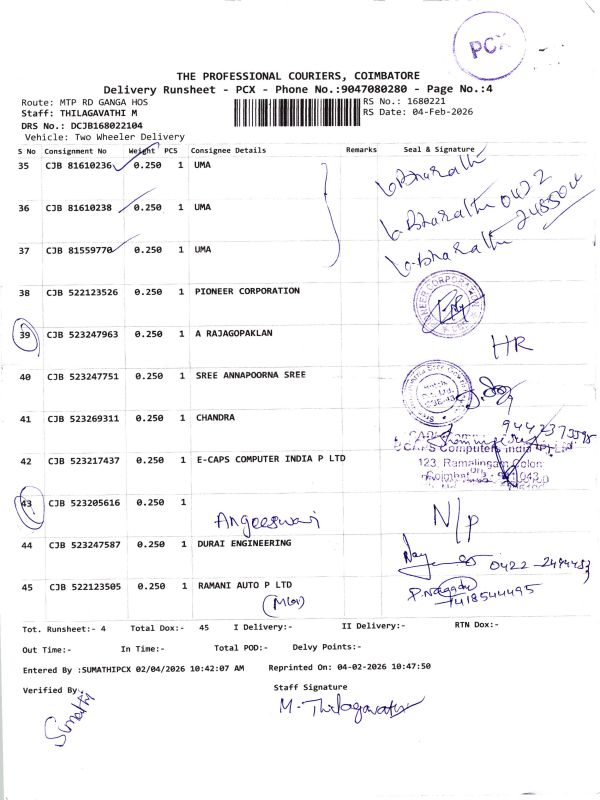 PCX
THE PROFESSIONAL COURIERS, COIMBATORE
Delivery Runsheet - PCX - Phone No.:9047080280 - Page No.:4
Route: MTP RD GANGA HOS
RS No.: 1680221
Staff: THILAGAVATHI M
RS Date: 04-Feb-2026
DRS No.: DCJB168022104
Vehicle: Two Wheeler Delivery
S No Consignment No Weight PCS Consignee Details Remarks Seal & Signature
35 CJB 81610236 0.250 1 UMA
G. Bharathi
36 CJB 81610238 0.250 1 UMA
G. Bharathi 0422
37 CJB 81559770 0.250 1 UMA
G. Bharathi
38 CJB 522123526 0.250 1 PIONEER CORPORATION
39 CJB 523247963 0.250 1 A RAJAGOPAKLAN
HR
40 CJB 523247751 0.250 1 SREE ANNAPOORNA SREE
41 CJB 523269311 0.250 1 CHANDRA
42 CJB 523217437 0.250 1 E-CAPS COMPUTER INDIA P LTD
E-CAPS Computers India (P) Ltd
123, Ramalingam Colony
43 CJB 523205616 0.250 1
Angeeswari
N/P
44 CJB 523247587 0.250 1 DURAI ENGINEERING
0422
45 CJB 522123505 0.250 1 RAMANI AUTO P LTD
P. Nagaraj
Tot. Runsheet:- 4 Total Dox:- 45 I Delivery:- II Delivery:- RTN Dox:-
Out Time:- In Time:- Total POD:- Delvy Points:-
Entered By :SUMATHIPCX 02/04/2026 10:42:07 AM Reprinted On: 04-02-2026 10:47:50
Verified By:
Staff Signature
Sumathi
M. Thilagavathi